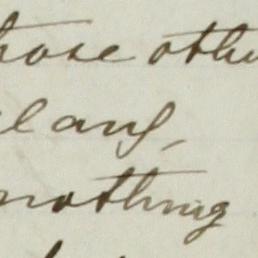 those othe
any,
nothing